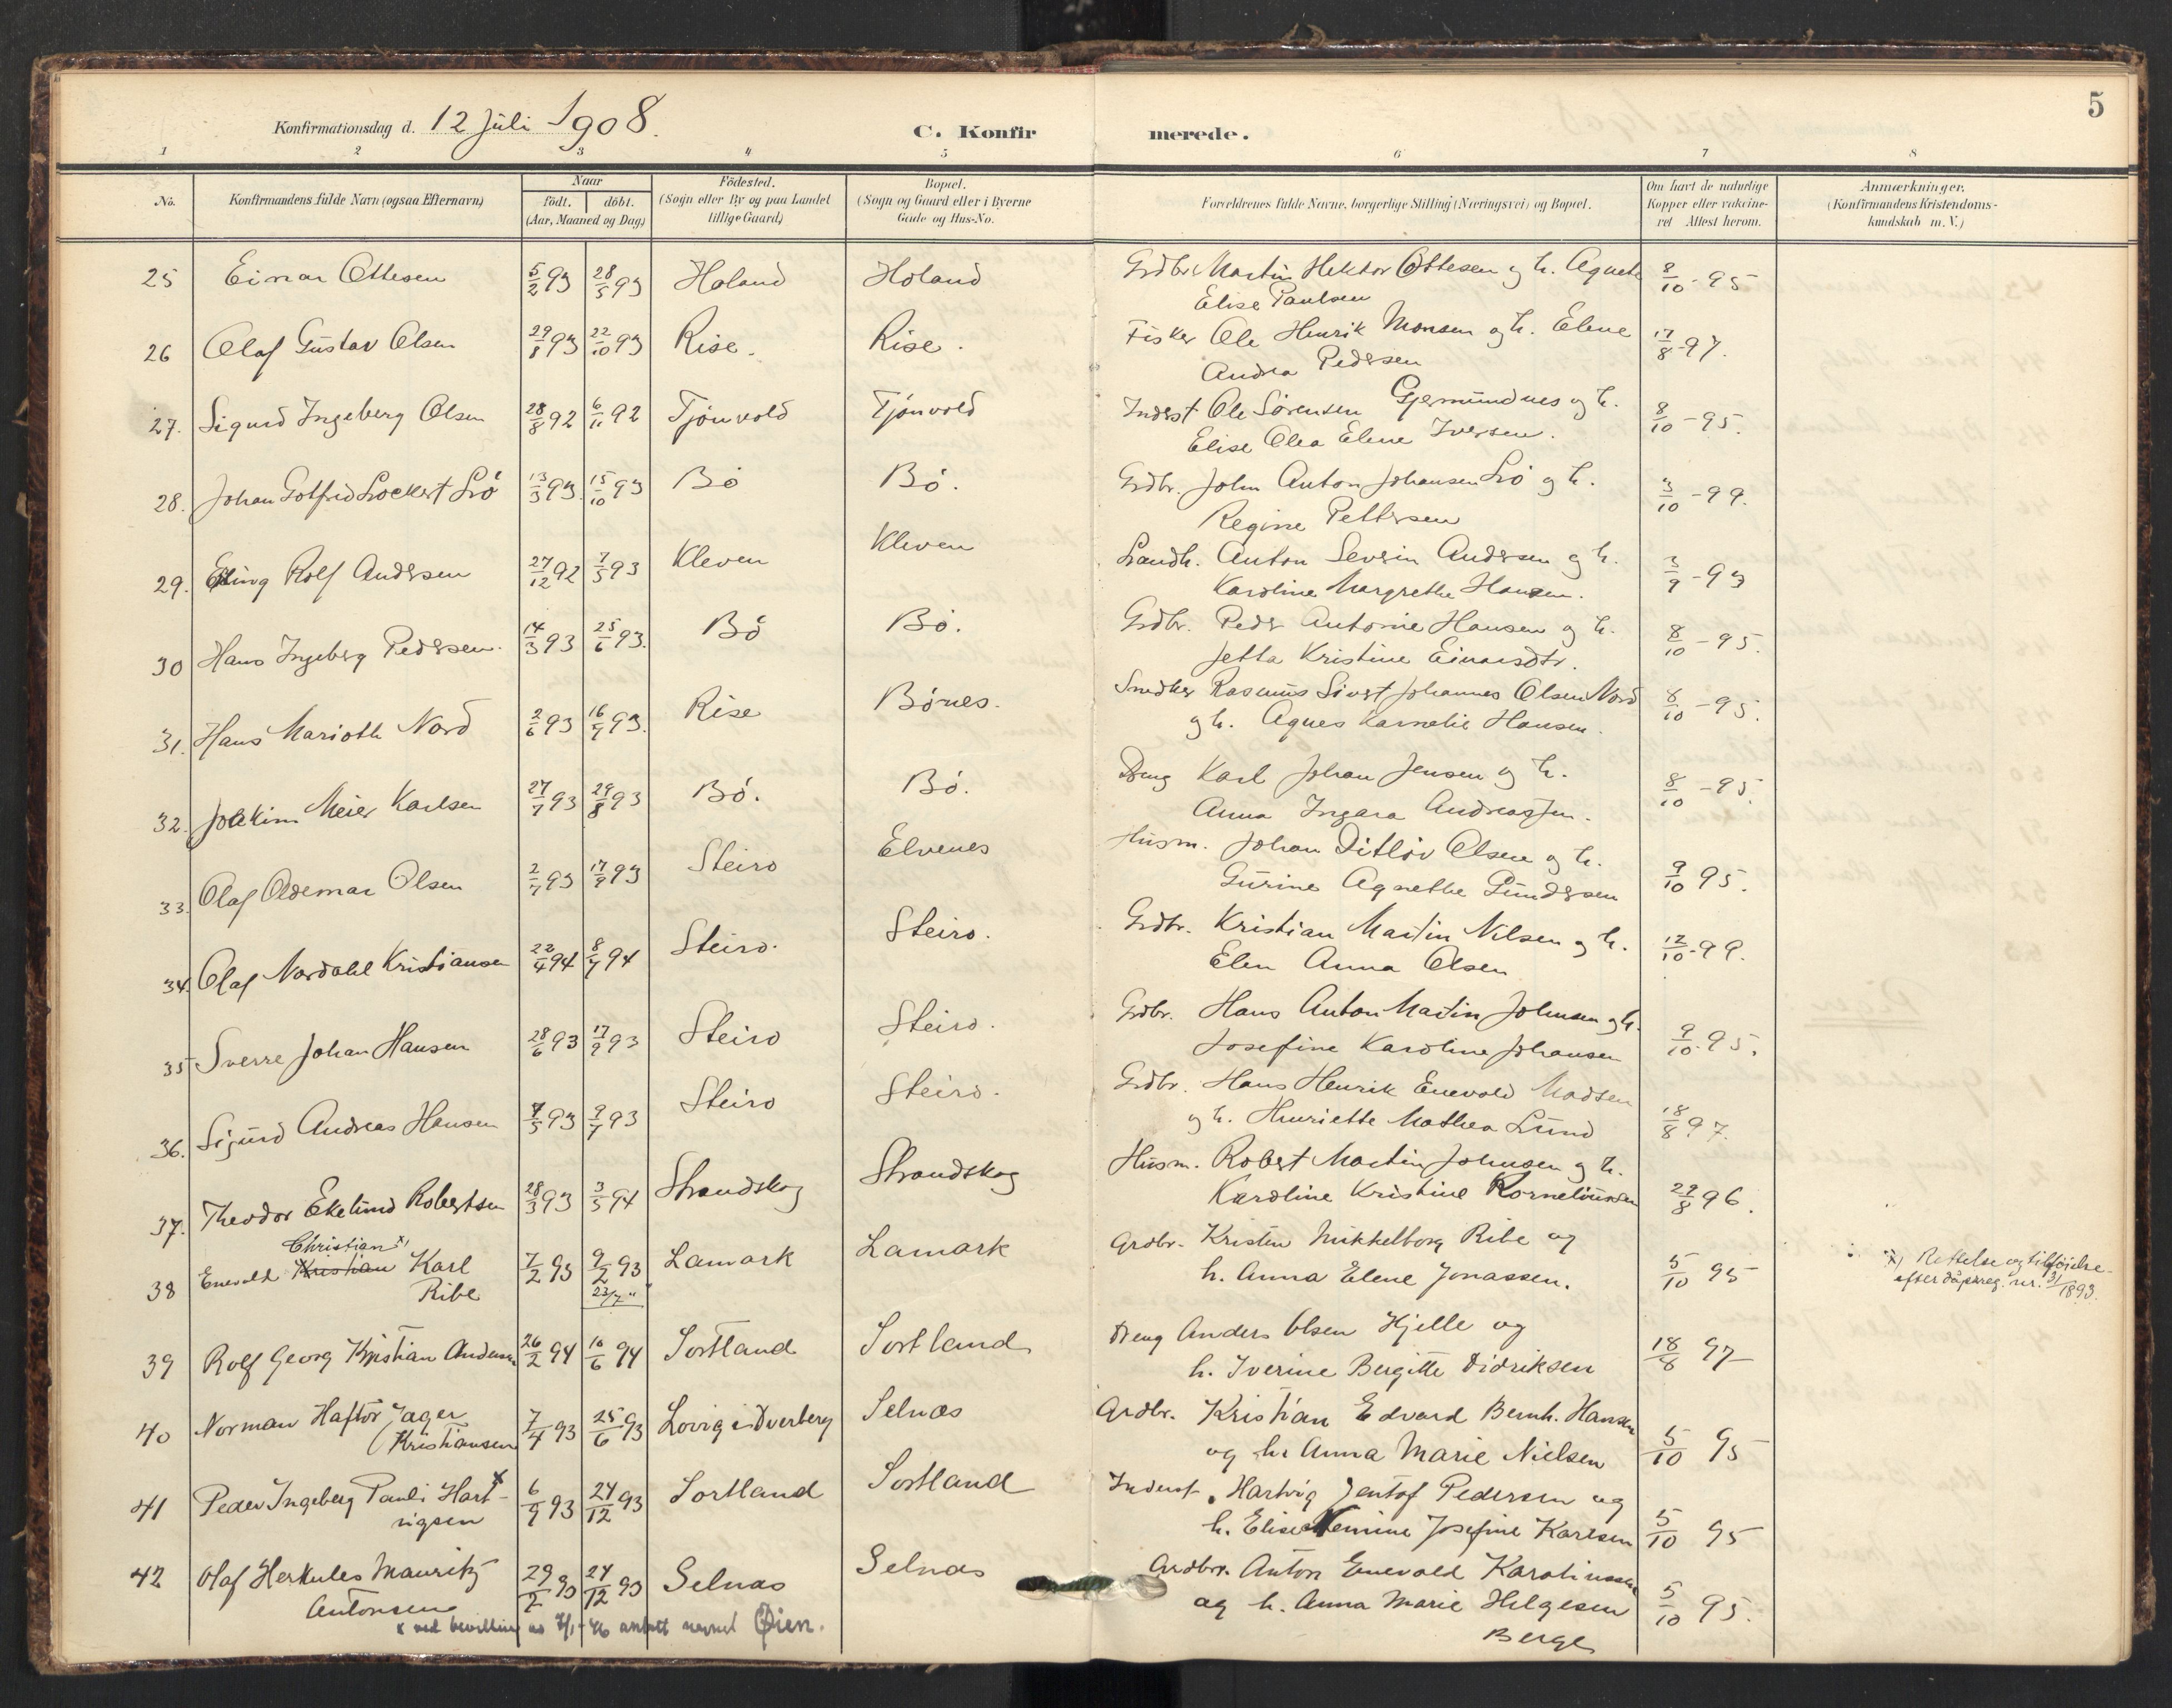 5
Konfirmationsdag d. 12 Juli 1908.
C. Konfirmerede.
1 2 3 4 5 6 7 8
No.
Konfirmandens fulde Navn (ogsaa Efternavn)
Naar
födt. döbt.
(Aar, Maaned og Dag)
Födested.
(Sogn eller By og paa Landet
tillige Gaard)
Bopæl.
(Sogn og Gaard eller i Byerne
Gade og Hus-No.
Forældrenes fulde Navne, borgerlige Stilling (Næringsvei) og Bopæl.
Om havt de naturlige
Kopper eller vakcine-
ret Attest herom.
Anmærkninger.
(Konfirmandens Kristendoms-
kundskab m. V.)
25 Einar Ottesen 5/2 93 28/5 93 Holand Holand Grdbr. Martin Hektor Ottesen og h. Agnete 8/10 - 95
Elise Paulsen
26 Olaf Gustav Olsen 29/8 93 22/10 93 Rise. Rise. Fisker Ole Henrik Monsen og h. Elene 17/8 - 97.
Andrea Pedersen
27. Sigurd Ingeberg Olsen 28/8 92 6/11 92 Tjönvold Tjönvold Inderst Ole Sörensen Gjermundnes og h. 8/10 - 95.
Elise Olea Elene Iversen.
28. Johan Gotfred Lockert Lrö 13/3 93 15/10 93 Bö Bö. Grdbr. John Anton Johansen Lrö og h. 3/10 - 99.
Regine Pettersen
29. Erling Rolf Andersen 27/12 92 7/5 93 Kleven Kleven Landh. Anton Severin Andersen og h. 3/9 - 93
Karoline Margrethe Hansen.
30 Hans Ingeberg Pedersen. 14/3 93 25/6 93. Bö Bö. Grdbr. Peder Antonie Hansen og h. 8/10 - 95.
Jetta Kristine Einarsdtr.
31. Hans Marioth Nord 2/6 93 16/7 93. Rise Börnes. Snedker Rasmus Sivert Johannes Olsen Nord 8/10 - 95.
og h. Agnes Karnelie Hansen.
32. Joakim Meier Karlsen 27/7 93 29/8 93 Bö. Bö. Dreng Karl Johan Jensen og h. 8/10 - 95.
Anna Ingara Andreassen.
33. Olaf Aldemar Olsen 2/7 93 17/9 93 Steiro Elvenes Husm. Johan Ditlöv Olsen og h. 9/10 95.
Gurine Agnethe Gundersen
34. Olaf Nordahl Kristiansen 22/4 94 8/7 94 Steiro. Steiro. Grdbr. Kristian Martin Nilsen og h. 12/10 - 99.
Elen Anna Olsen
35 Sverre Johan Hansen 28/6 93 17/9 93 Steiro Steiro. Grdbr. Hans Anton Martin Johnsen og h. 9/10 - 95.
Josefine Karoline Johansen
36. Sigurd Andreas Hansen 7/5 93 9/7 93 Steiro Steiro. Grdbr. Hans Henrik Enevold Madsen 18/8 97.
og h. Henriette Mathea Lund
37. Theodor Ekelund Robertsen 28/3 93 3/5 94 Strandskog Strandskog Husm. Robert Martin Johnsen og h. 29/8 96.
Karoline Kristine Korneliussen
Christian x)
38 Enevold Kristian Karl 7/2 93 9/2 93 Lamark Lamark Grdbr. Kristen Mikkelborg Ribe og 5/10 95
Ribe 23/7 " h. Anna Elene Jonassen.
x) Rettelse og tilföielse
efter dåpsreg. nr. 31/1893.
39 Rolf Georg Kristian Andersen 26/2 94 10/6 94 Sortland Sortland Dreng Anders Olsen Hjelle og 18/8 97
h. Iverine Bergitte Didriksen
40 Norman Haftor Jager 7/4 93 25/6 93 Lovig i Dverberg Selnæs Grdbr. Kristian Edvard Bernh. Hansen 5/10 95
Kristiansen og h. Anna Marie Nielsen
41 Peder Ingeberg Pauli Hart- x 6/9 93 24/12 93 Sortland Sortland Inderst. Hartvig Jentof Pedersen og 5/10 95
vigsen h. Elise Josefine Karlsen
42 Olaf Herkules Mauritz 29/7 93 24/12 93 Selnæs Selnæs Grdbr. Anton Enevold Karolinussen 5/10 95.
Antonsen og h. Anna Marie Helgesen
Berge
x ved bevilling av 7/1-46 antatt navnet Øien.